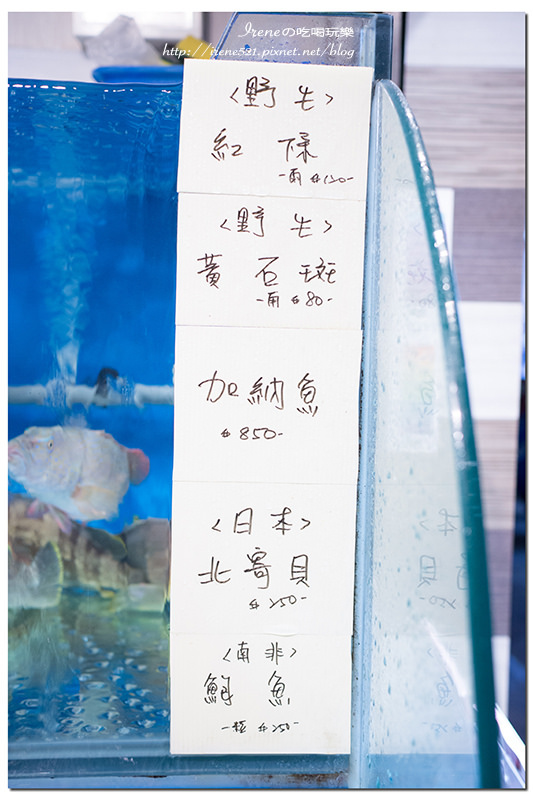 Ireneの吃喝玩樂
http://irene521.pixnet.net/blog
<野生>
紅條
一兩 $120-
<野生>
黃石斑
一兩 $80-
加納魚
$850-
<日本>
北寄貝
$250-
<南非>
鮑魚
一粒 $250-